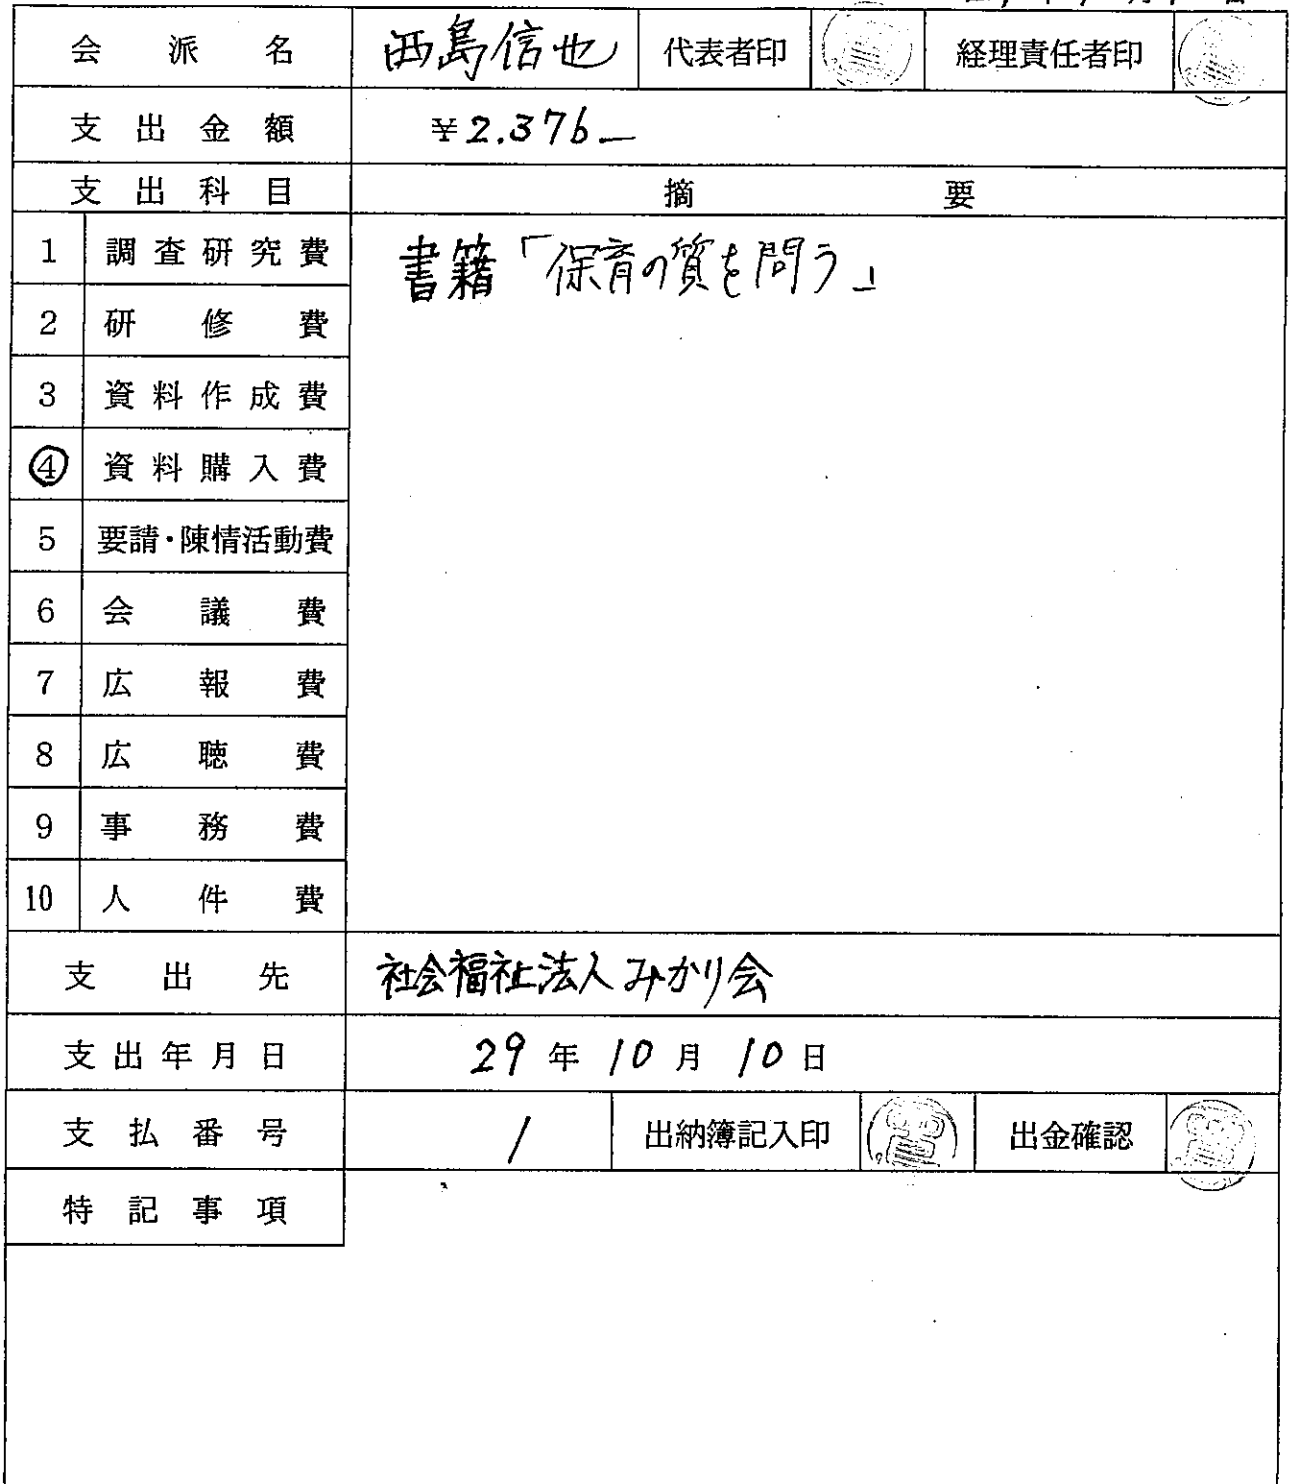 会派名 西島信也 代表者印 経理責任者印
支出金額 ¥2.376-
支出科目 摘要
1 調査研究費 書籍「保育の質を問う」
2 研修費
3 資料作成費
④ 資料購入費
5 要請・陳情活動費
6 会議費
7 広報費
8 広聴費
9 事務費
10 人件費
支出先 社会福祉法人みかり会
支出年月日 29年10月10日
支払番号 1 出納簿記入印 出金確認
特記事項